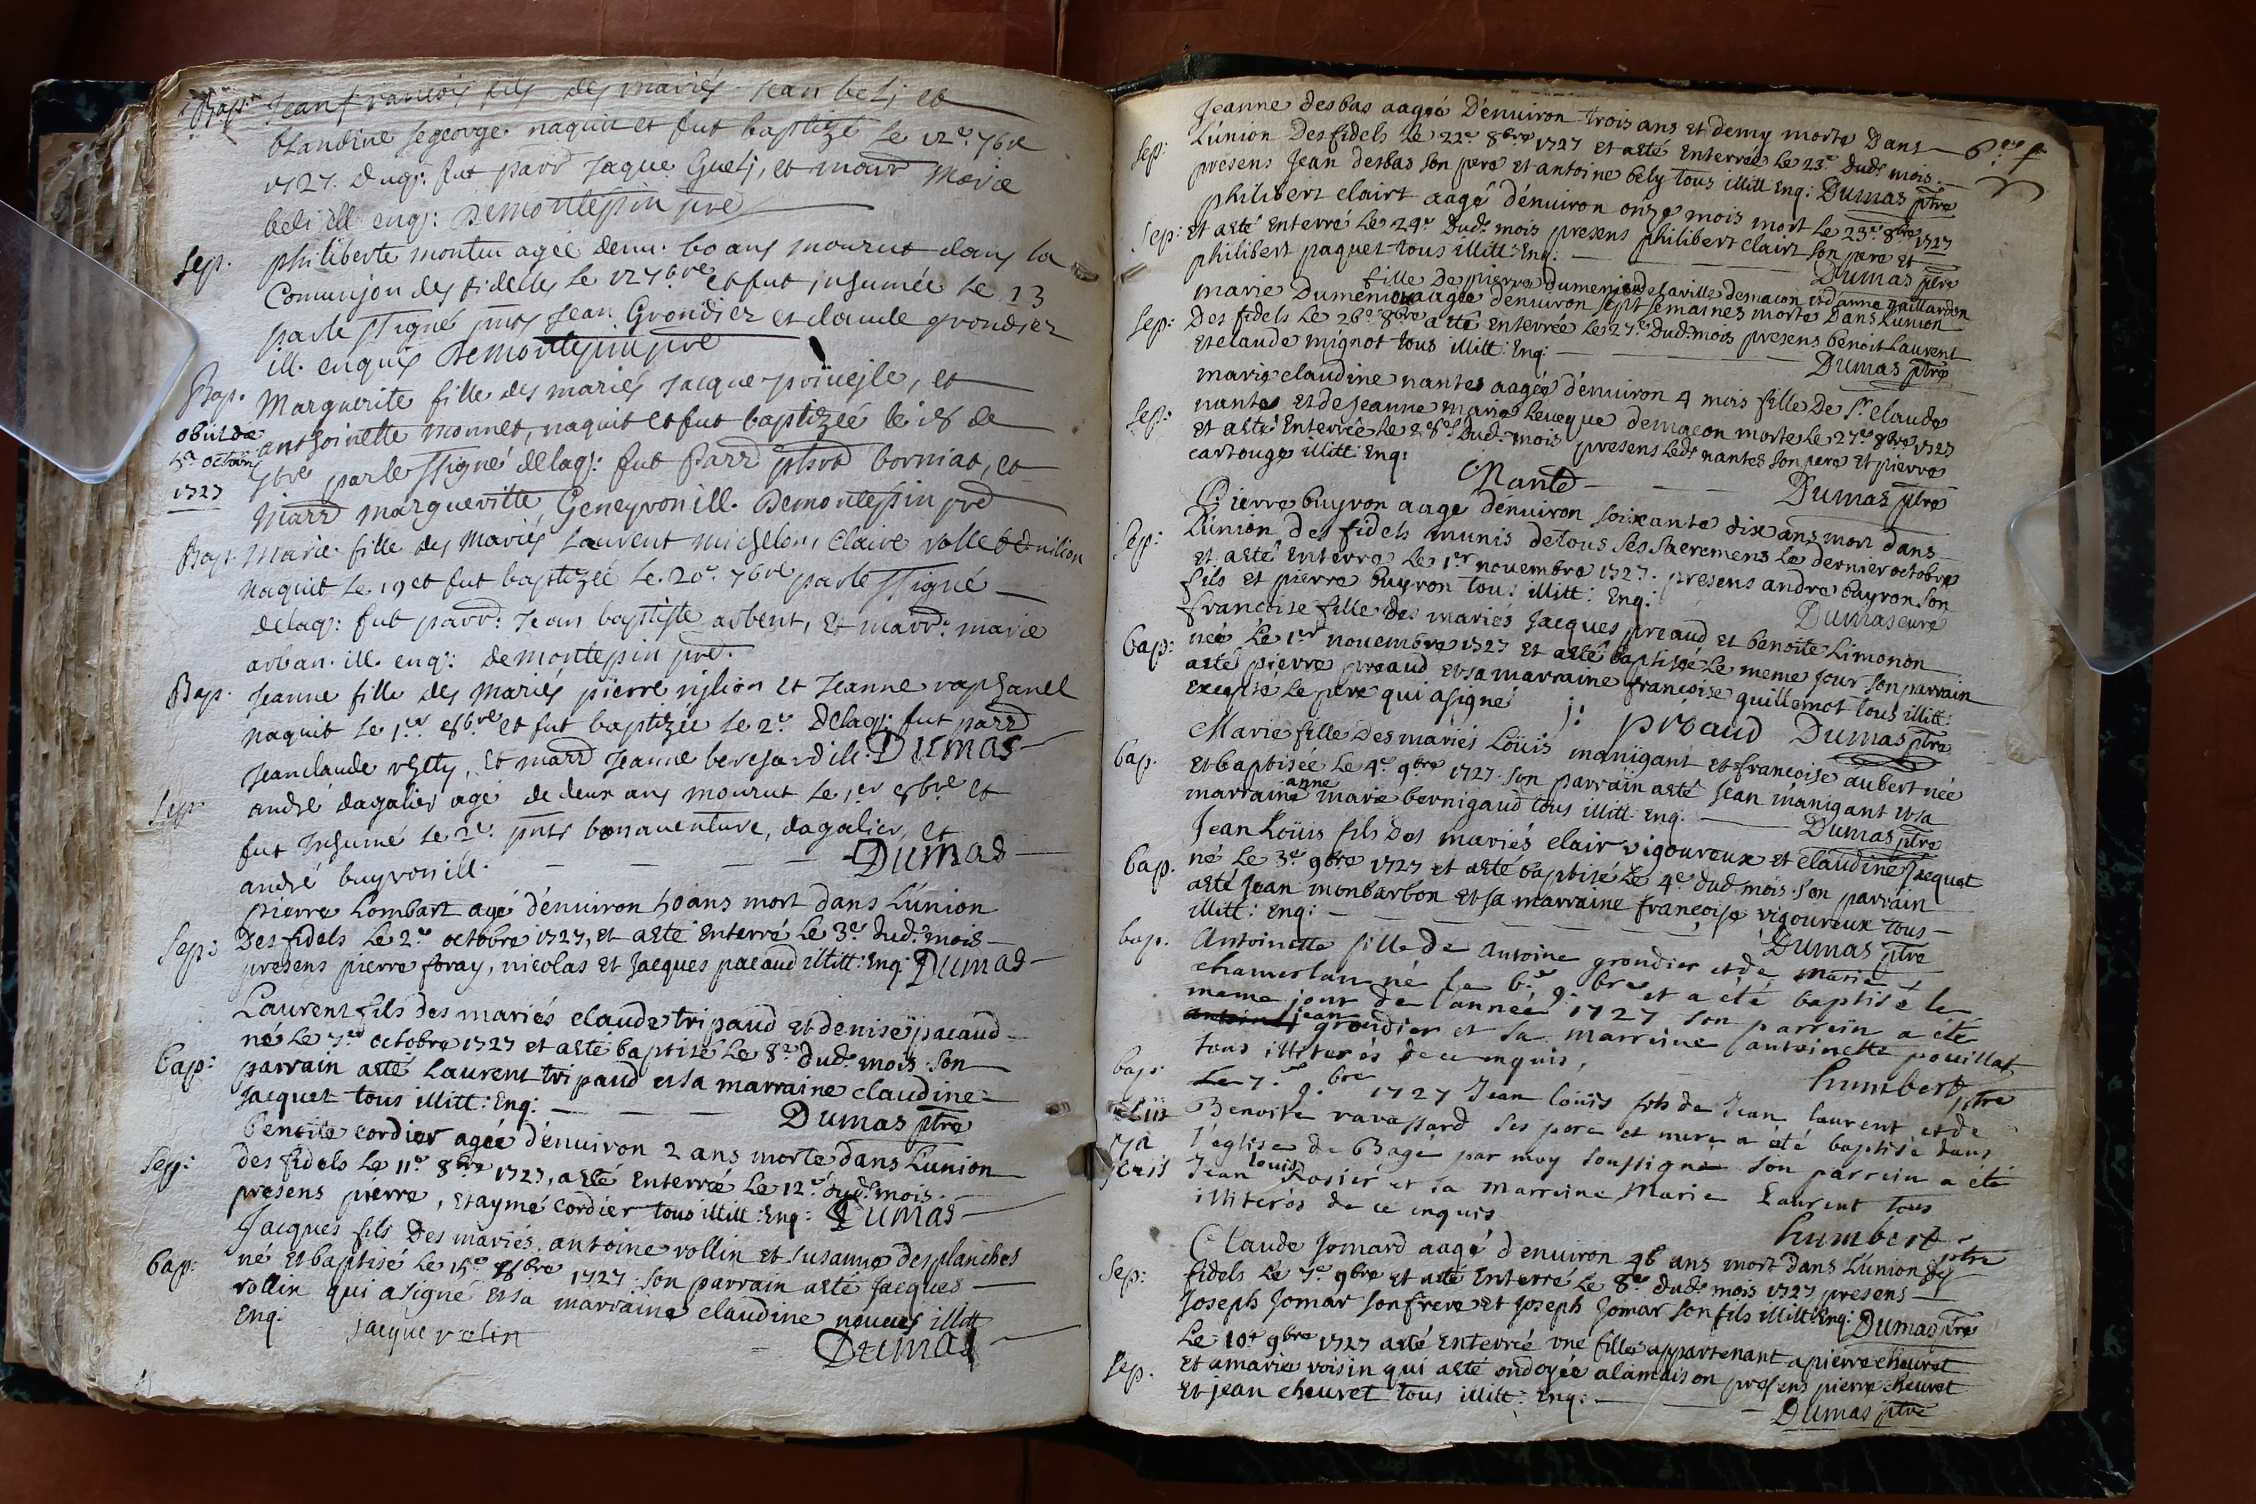 Bap. Jean francois fils des mariés Jean beli et
blandine segeorge naquit et fut baptizé le 12e 7bre
1727. dugs: fut parr Jaque Gueli, et marr Marie
beli ill enqs: Demontessin pre
Sep. philiberte montu agée denu. 60 ans mourut dans la
Comunion des fidelles le 12 7bre et fut inhumée le 13
par le ssigné pnts Jean Grondier et claude grondier
ill. enquis Demontessin pre
Bap. Marguerite fille des mariés Jacque et
obiit die
5a octobris
1727
anthoinette monnet, naquit et fut baptizée le 18 de
7bre par le ssigné delags: fut Parr phirt borniat, et
Marr margueritte Geneyron ill. Demontessin pre
Bap. Marie fille des Mariés Laurent michelon, Claire vollet
naquit le 19 et fut baptizée le 20e 7bre par le ssigné
delags: fut parr: Jean baptiste arbent, Et marr: marie
arban. ill. enqs: Demontessin pre.
Bap. Jeanne fille des Mariés pierre et Jeanne raphanel
naquit le 1er 8bre et fut baptizée le 2e Delags: fut parr
Jeanclaude Et marr Jeanne berchard ill: Dumas
Sep. andré dagalier agé de deux ans mourut le 1er 8bre et
fut Inhumé le 2e. pnts bonaventure, dagalier, et
andré buyron ill. Dumas
pierre Lombart agé d'enuiron 50 ans mort dans L'union
Sep: Des fidels Le 2e octobre 1727, et aeté Enterré Le 3e dud: mois
presens pierre foray, nicolas Et Jacques pacaud illitt: Enq: Dumas
Laurent fils des mariés claude tripaud Et denise pacaud
né Le 7e octobre 1727 et aeté baptisé Le 8e dud: mois. Son
bap: parrain aeté Laurent tripaud et sa marraine claudine
Jacquet tous illitt: Enq: Dumas ptre
benoite cordier agée d'enuiron 2 ans morte dans L'union
Sep: des fidels Le 11e 8bre 1727, aeté Enterrée Le 12e dud: mois.
presens pierre, Et aymé cordier tous illitt: Enq: Dumas
Jacques fils Des mariés antoine rollin Et susanne desplanches
bap: né Et baptisé Le 15e 8bre 1727. Son parrain aeté Jacques
rollin qui a signé Et sa marraine claudine illitt
Enq: jacque rolin Dumas
Jeanne desbas aagée D'enuiron trois ans et demy morte Dans
Sep: L'union Des fidels Le 22e 8bre 1727 et aeté Enterrée Le 23e dud: mois.
presens Jean desbas son pere et antoine bely tous illitt Enq: Dumas ptre
philibert clairt aagé d'enuiron onze mois mort Le 23e 8bre 1727
Sep: et aeté Enterré Le 24e Dud: mois presens philibert clairt Son pere Et
philibert paquet tous illitt: Enq: Dumas ptre
fille De pierre dumenjou de la ville de macon et d'anne gaillardon
marie Dumenjou aagée d'enuiron sept semaines morte Dans L'union
Sep: Des fidels Le 26e 8bre aeté Enterrée Le 27e Dud: mois presens benoit Laurent
et claude mignot tous illitt: Enq: Dumas ptre
marie claudine nantes aagée d'enuiron 4 mois fille De Sr claude
Sep: nantes Et de Jeanne marie Leveque de macon morte Le 27e 8bre 1727
et aeté Enterrée Le 28e Dud: mois presens Ledt nantes Son pere Et pierre
cartouge illitt: Enq: Nante Dumas ptre
Pierre buyron aagé d'enuiron soixante dix ans mort dans
Sep: L'union des fidels munis de tous Ses Sacremens Le dernier octobre
Et aeté Enterré Le 1er novembre 1727. presens andre buyron Son
fils Et pierre buyron tous illitt: Enq: Dumas curé
francoise fille des mariés Jacques preaud et benoite Limonon
bap: née Le 1er novembre 1727 Et aeté baptisée Le meme jour Son parrain
aeté pierre preaud et sa marraine francoise guillemot tous illitt:
Excepté Le pere qui a signé j: preaud Dumas ptre
Marie fille Des mariés Loüis manigant et francoise aubert née
bap. Et baptisée Le 4e 9bre 1727. Son parrain aeté Jean manigant Et sa
marraine anne marie bernigaud tous illitt. Enq. Dumas ptre
Jean Loüis fils Des mariés clair vigoureux et claudine Jacquet
bap. né Le 3e 9bre 1727 et aeté baptisé Le 4e dud: mois. Son parrain
aeté Jean monbarbon Et sa marraine francoise vigoureux tous
illitt: Enq: Dumas ptre
bap. Antoinette fille de antoine grondier et de marie
chamerlan né le 6e 9bre et a été baptisé le
meme jour de l'année 1727 son parrein a été
jean grondier et sa marreine antoinette pouillat
tous illiterés de ce enquis, humbert ptre
bap. Le 7e 9bre 1727 Jean louis fils de Jean laurent et de
Benoite ravassard ses pere et mere a été baptisé dans
l'eglise de Bagé par moy soussigné son parrein a été
Jean louis Rosier et sa marreine Marie Laurent tous
illiterés de ce enquis humbert ptre
Claude Jomard aagé d'enuiron 46 ans mort dans L'union des
Sep: fidels Le 7e 9bre et aeté Enterré Le 8e dud: mois 1727 presens
Joseph Jomar Son frere Et Joseph Jomar Son fils illitt: Enq: Dumas ptre
Le 10e 9bre 1727 aeté Enterrée une fille appartenant a pierre cheuret
Sep. Et a marie voisin qui aeté ondoyée a la maison presens pierre cheuret
Et jean cheuret tous illitt: Enq: Dumas ptre